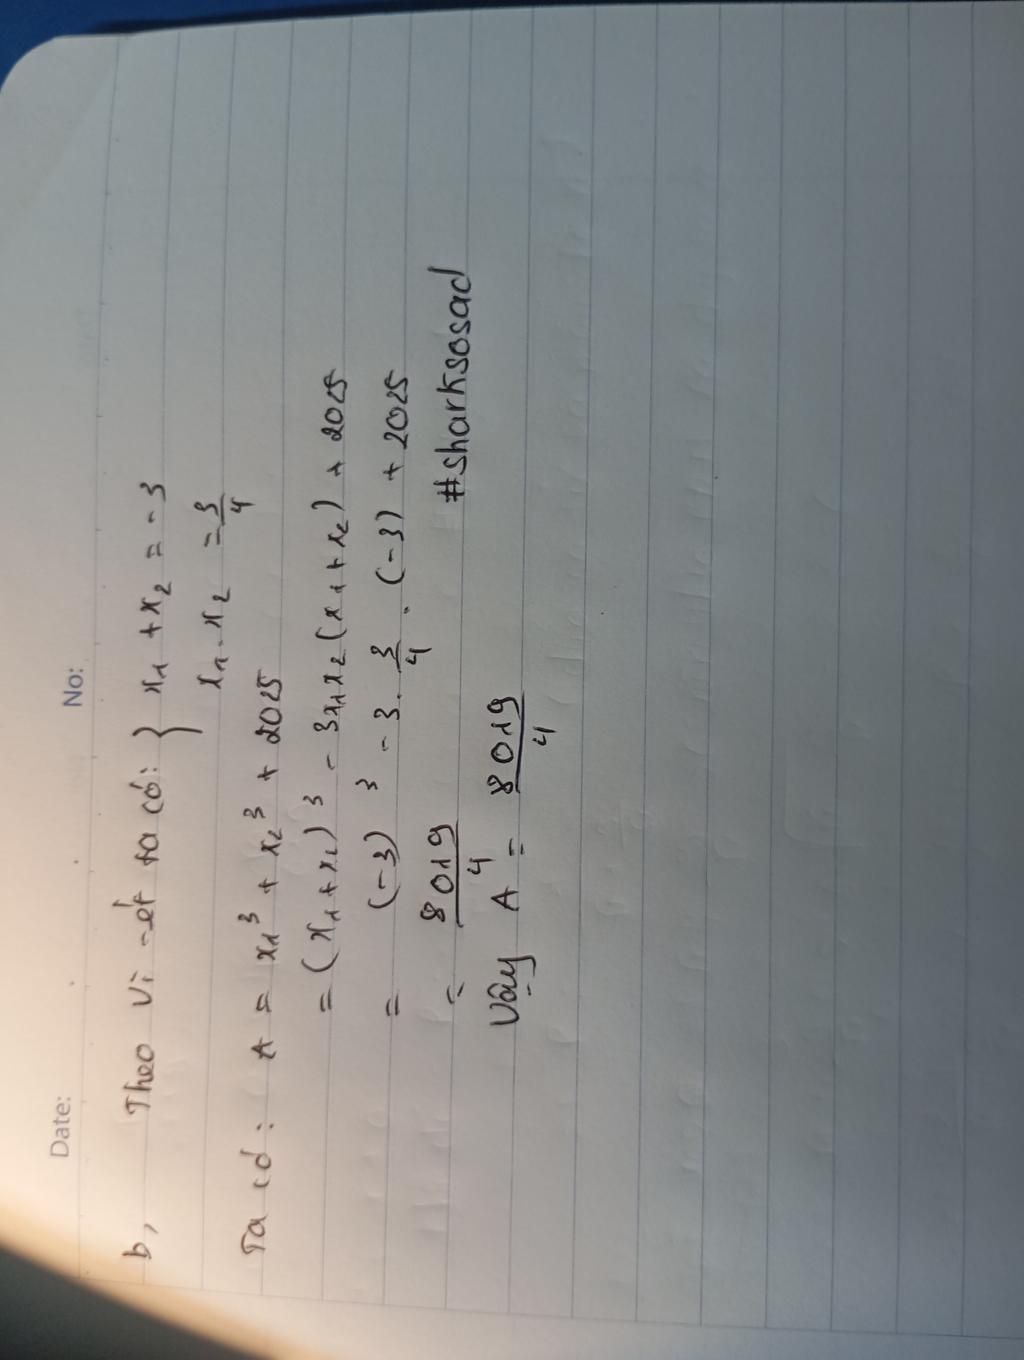 Date: No:
b, Theo Vi-ét ta có: } x₁ + x₂ = -3
x₁ . x₂ = 3/4
Ta có: A = x₁³ + x₂³ + 2025
= (x₁ + x₂)³ - 3x₁x₂(x₁ + x₂) + 2025
= (-3)³ - 3 . 3/4 . (-3) + 2025
= 8019/4 #sharksosad
Vậy A = 8019/4